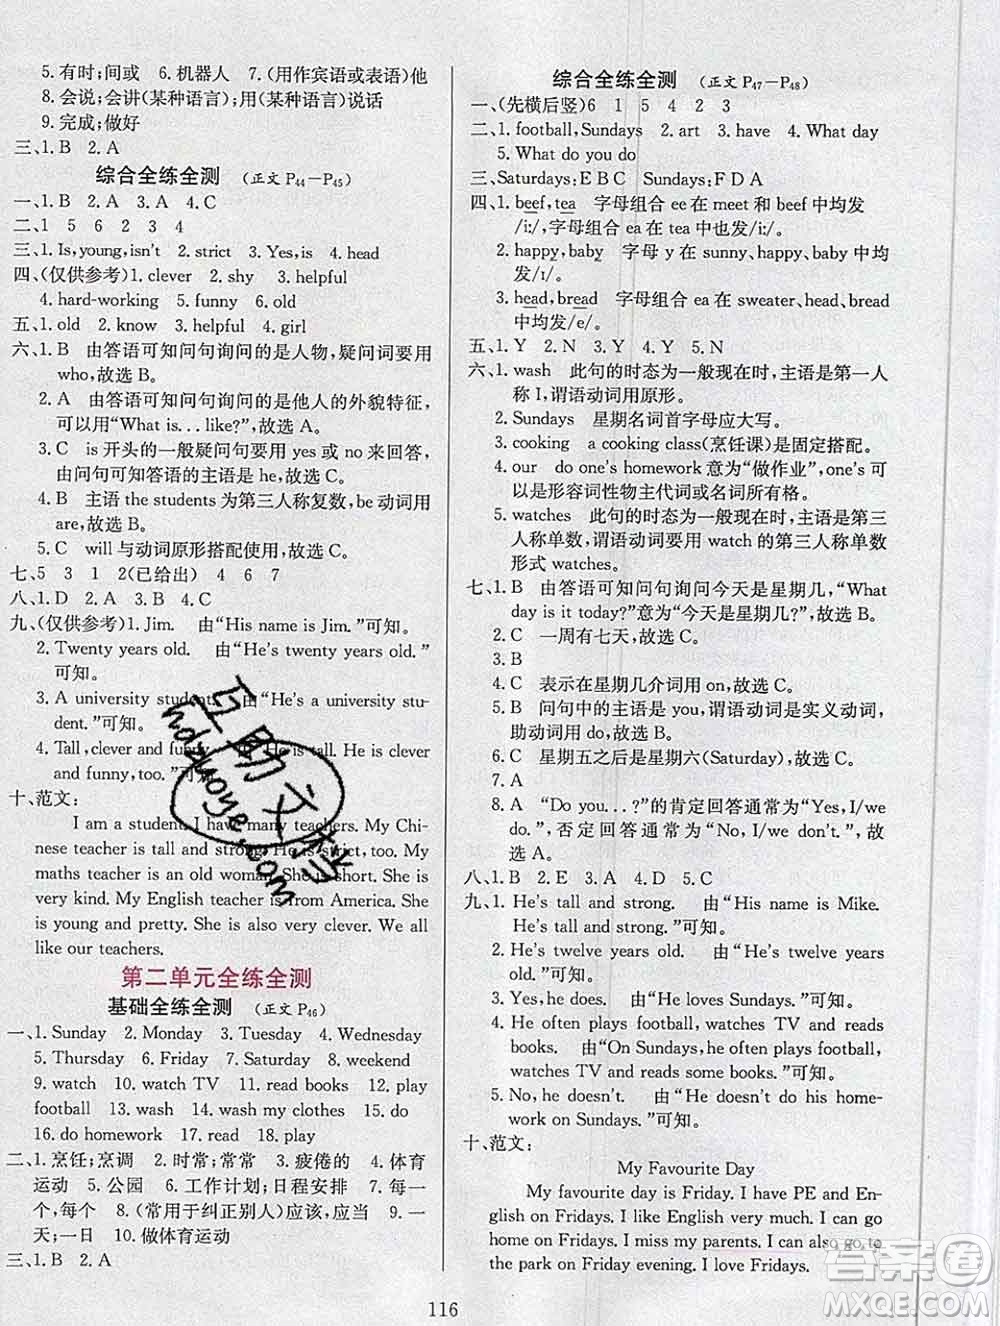 5. 有时;间或 6. 机器人 7. (用作宾语或表语)他
8. 会说;会讲(某种语言);用(某种语言)说话
9. 完成;做好
三、1. B 2. A
综合全练全测 (正文 P44—P45)
一、1. B 2. A 3. A 4. C
二、1 5 6 2 3 4
三、1. Is, young, isn't 2. strict 3. Yes, is 4. head
四、(仅供参考)1. clever 2. shy 3. helpful
4. hard-working 5. funny 6. old
五、1. old 2. know 3. helpful 4. girl
六、1. B 由答语可知问句询问的是人物,疑问词要用
who,故选 B。
2. A 由答语可知问句询问的是他人的外貌特征,
可以用“What is. . . like?”,故选 A。
3. C is 开头的一般疑问句要用 yes 或 no 来回答,
由问句可知答语的主语是 he,故选 C。
4. B 主语 the students 为第三人称复数,be 动词用
are,故选 B。
5. C will 与动词原形搭配使用,故选 C。
七、5 3 1 2(已给出) 4 6 7
八、1. D 2. A 3. B 4. C
九、(仅供参考)1. Jim. 由“His name is Jim.”可知。
2. Twenty years old. 由“He's twenty years old.”
可知。
3. A university student. 由“He's a university stu-
dent.”可知。
4. Tall, clever and funny. 由“He is tall. He is clever
and funny, too.”可知。
十、范文:
I am a student. I have many teachers. My Chi-
nese teacher is tall and strong. He is strict, too. My
maths teacher is an old woman. She is short. She is
very kind. My English teacher is from America. She
is young and pretty. She is also very clever. We all
like our teachers.
第二单元全练全测
基础全练全测 (正文 P46)
一、1. Sunday 2. Monday 3. Tuesday 4. Wednesday
5. Thursday 6. Friday 7. Saturday 8. weekend
9. watch 10. watch TV 11. read books 12. play
football 13. wash 14. wash my clothes 15. do
16. do homework 17. read 18. play
二、1. 烹饪;烹调 2. 时常;常常 3. 疲倦的 4. 体育
运动 5. 公园 6. 工作计划;日程安排 7. 每一
个,每个 8. (常用于纠正别人)应该,应当 9. 一
天;一日 10. 做体育运动
三、1. B 2. A
综合全练全测 (正文 P47—P48)
一、(先横后竖)6 1 5 4 2 3
二、1. football, Sundays 2. art 3. have 4. What day
5. What do you do
三、Saturdays: E B C Sundays: F D A
四、1. beef, tea 字母组合 ee 在 meet 和 beef 中均发
/iː/,字母组合 ea 在 tea 中也发/iː/。
2. happy, baby 字母 y 在 sunny、happy、baby 中均
发/ɪ/。
3. head, bread 字母组合 ea 在 sweater、head、bread
中均发/e/。
五、1. Y 2. N 3. Y 4. Y 5. N
六、1. wash 此句的时态为一般现在时,主语是第一人
称 I,谓语动词用原形。
2. Sundays 星期名词首字母应大写。
3. cooking a cooking class(烹饪课)是固定搭配。
4. our do one's homework 意为“做作业”,one's 可
以是形容词性物主代词或名词所有格。
5. watches 此句的时态为一般现在时,主语是第三
人称单数,谓语动词要用 watch 的第三人称单数
形式 watches。
七、1. B 由答语可知问句询问今天是星期几,“What
day is it today?”意为“今天是星期几?”,故选 B。
2. C 一周有七天,故选 C。
3. B
4. C 表示在星期几介词用 on,故选 C。
5. B 问句中的主语是 you,谓语动词是实义动词,
助动词用 do,故选 B。
6. C 星期五之后是星期六(Saturday),故选 C。
7. A
8. A “Do you. . . ?”的肯定回答通常为“Yes, I/we
do.”,否定回答通常为“No, I/we don't.”,故
选 A。
八、1. B 2. E 3. A 4. D 5. C
九、1. He's tall and strong. 由“His name is Mike.
He's tall and strong.”可知。
2. He's twelve years old. 由“He's twelve years
old.”可知。
3. Yes, he does. 由“He loves Sundays.”可知。
4. He often plays football, watches TV and reads
books. 由“On Sundays, he often plays football,
watches TV and reads some books.”可知。
5. No, he doesn't. 由“He doesn't do his home-
work on Sundays.”可知。
十、范文:
My Favourite Day
My favourite day is Friday. I have PE and En-
glish on Fridays. I like English very much. I can go
home on Fridays. I miss my parents. I can also go to
the park on Friday evening. I love Fridays.
116
互助文档
hdzuoye.com
答案圈
MXQE.COM